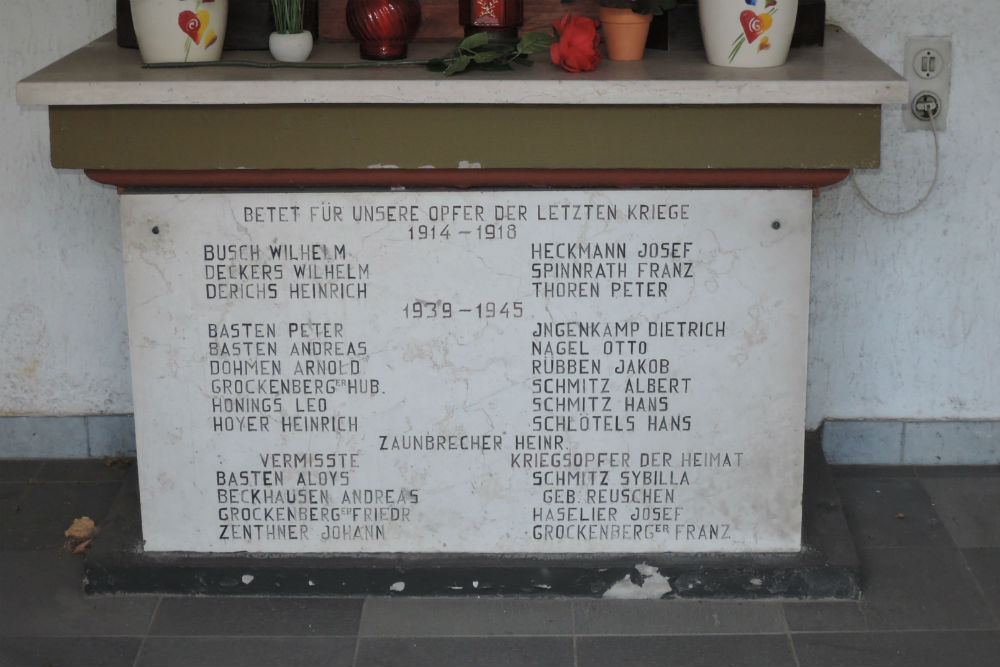 BETET FÜR UNSERE OPFER DER LETZTEN KRIEGE
1914 – 1918
BUSCH WILHELM
DECKERS WILHELM
DERICHS HEINRICH
HECKMANN JOSEF
SPINNRATH FRANZ
THOREN PETER
1939 – 1945
BASTEN PETER
BASTEN ANDREAS
DOHMEN ARNOLD
GROCKENBERGER HUB.
HONINGS LEO
HOYER HEINRICH
JNGENKAMP DIETRICH
NAGEL OTTO
RÜBBEN JAKOB
SCHMITZ ALBERT
SCHMITZ HANS
SCHLÖTELS HANS
ZAUNBRECHER HEINR.
VERMISSTE
BASTEN ALOYS
BECKHAUSEN ANDREAS
GROCKENBERGER FRIEDR
ZENTHNER JOHANN
KRIEGSOPFER DER HEIMAT
SCHMITZ SYBILLA
GEB. REUSCHEN
HASELIER JOSEF
GROCKENBERGER FRANZ